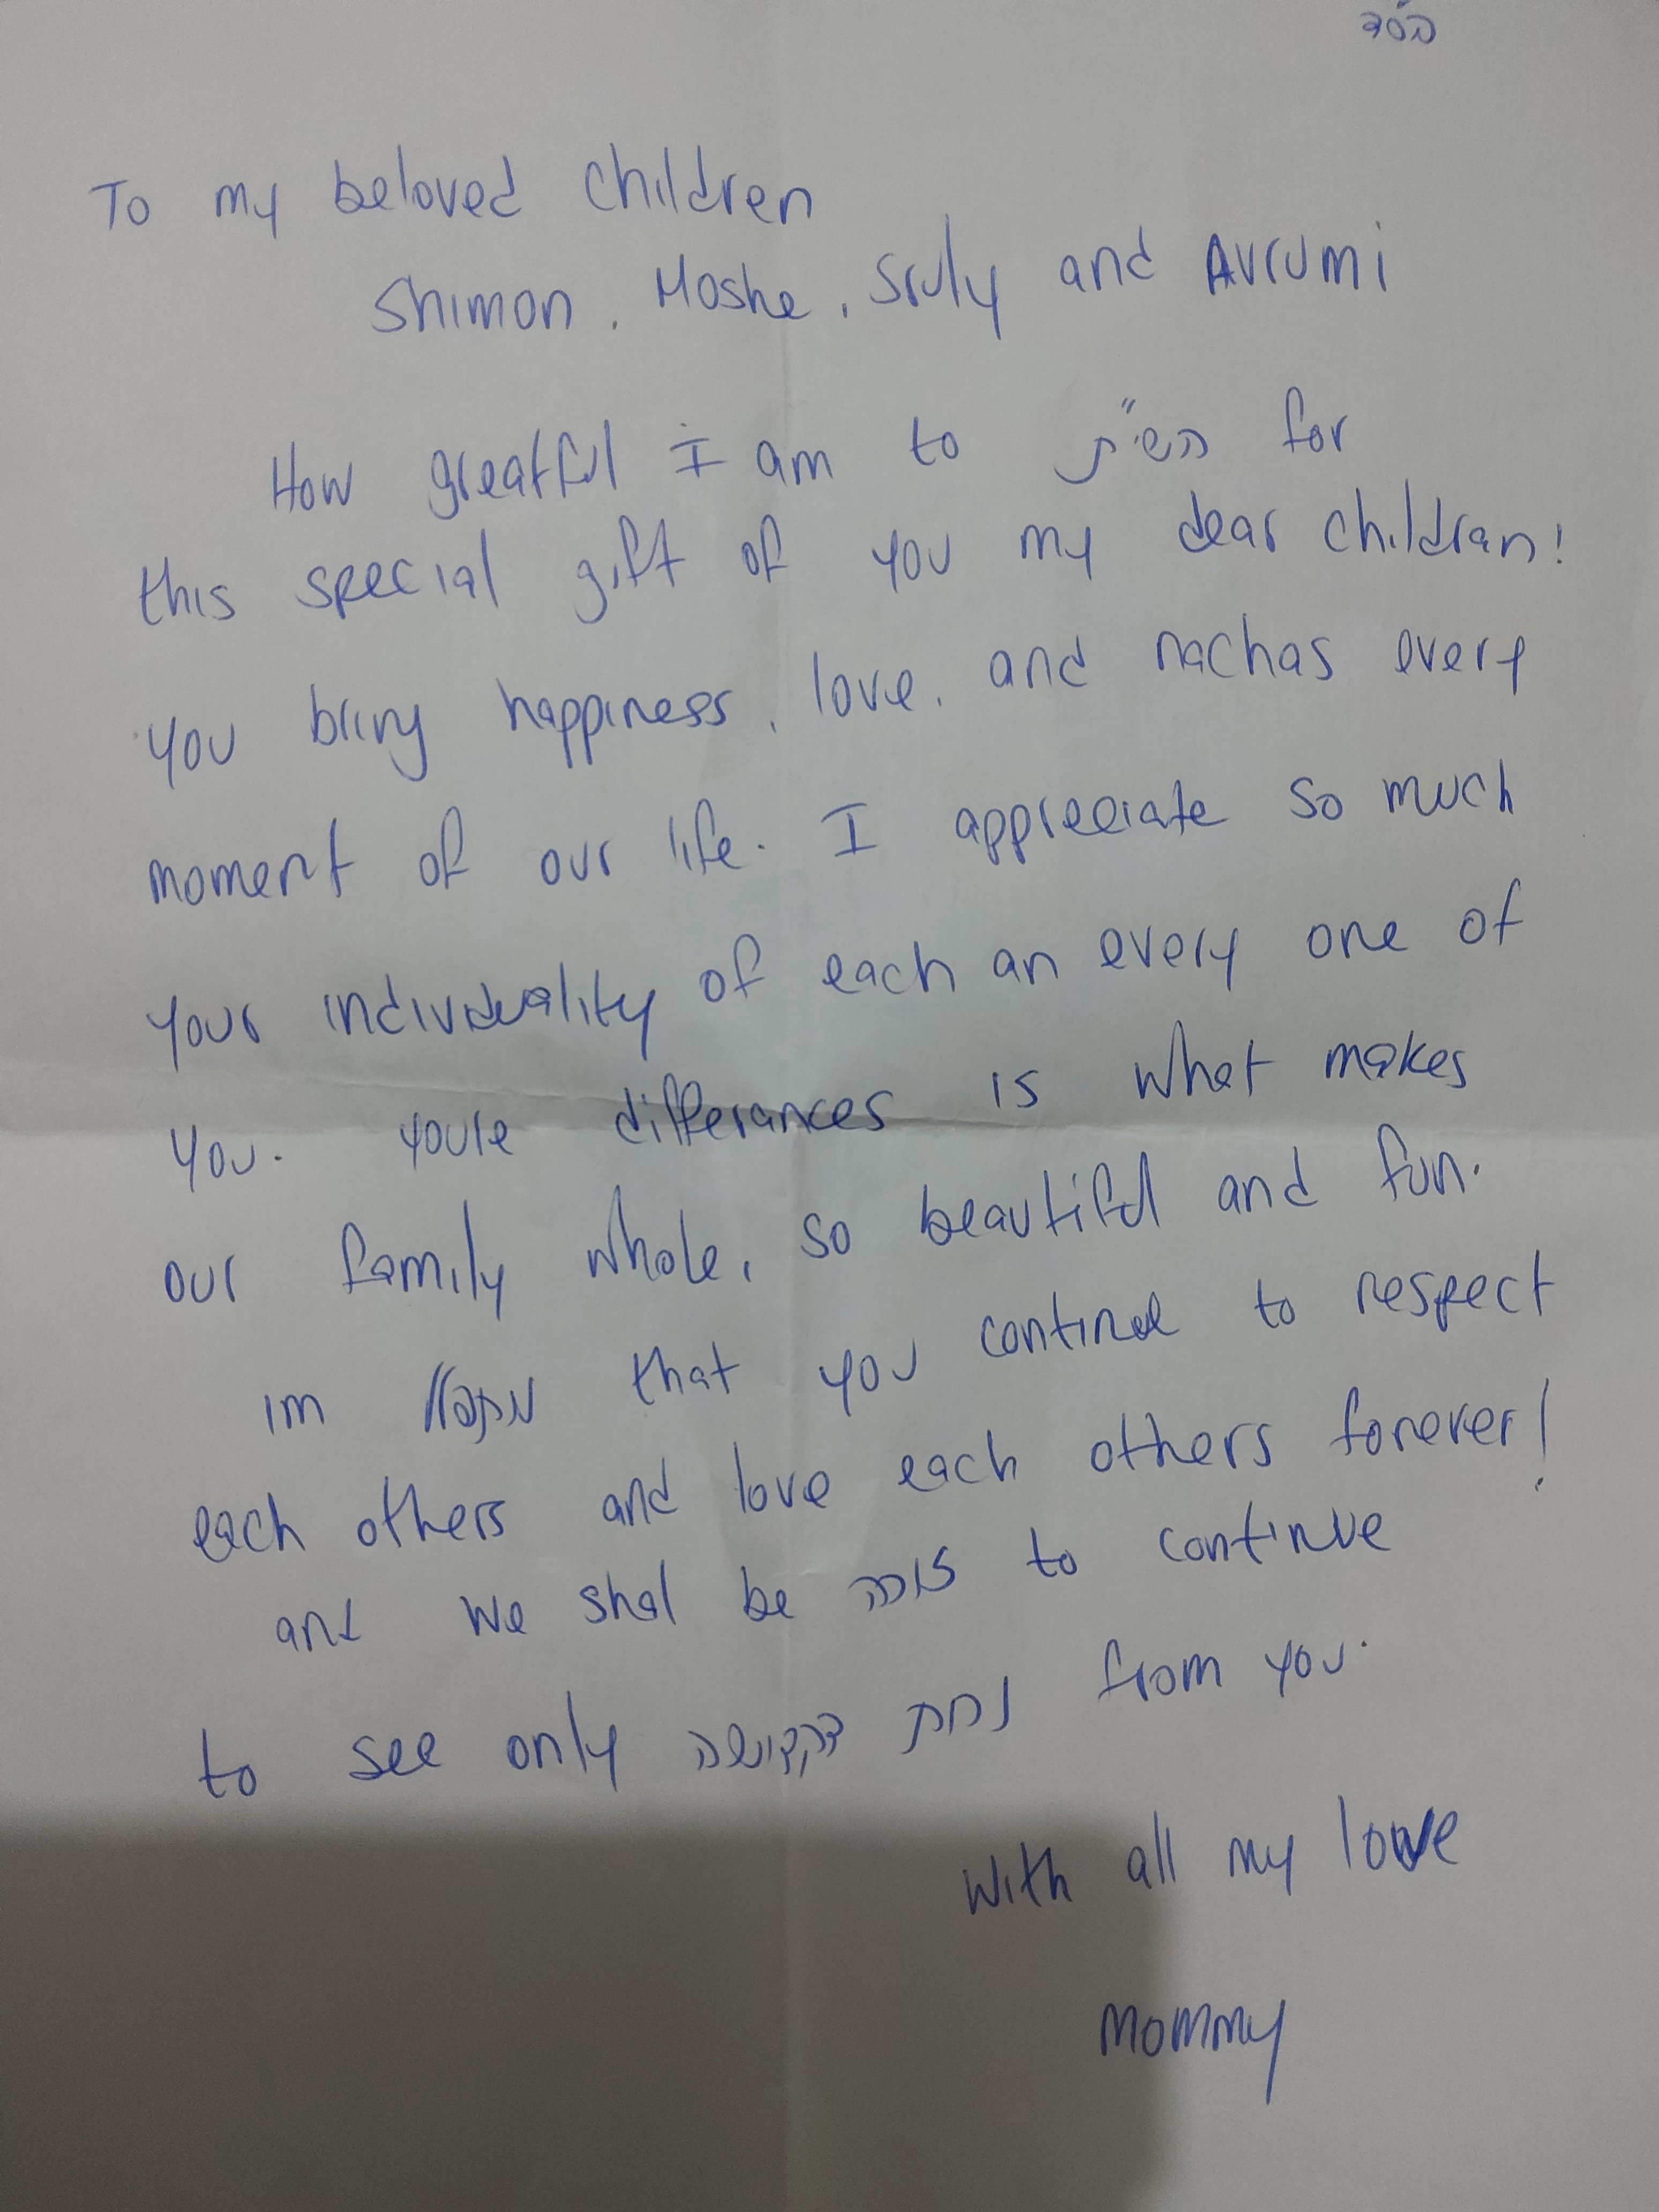 בס"ד
To my beloved children
Shimon, Moshe, Sruly and Avrumi
How greatful I am to השי"ת for
this special gift of you my dear childran!
you bring happiness, love, and nachas every
moment of our life. I appreciate so much
your individuality of each an every one of
you. youre differances is what makes
our family whole, so beautiful and fun.
im מתפלל that you continue to respect
each others and love each others forever!
and we shal be זוכה to continue
to see only נחת דקדושה from you.
with all my love
Mommy